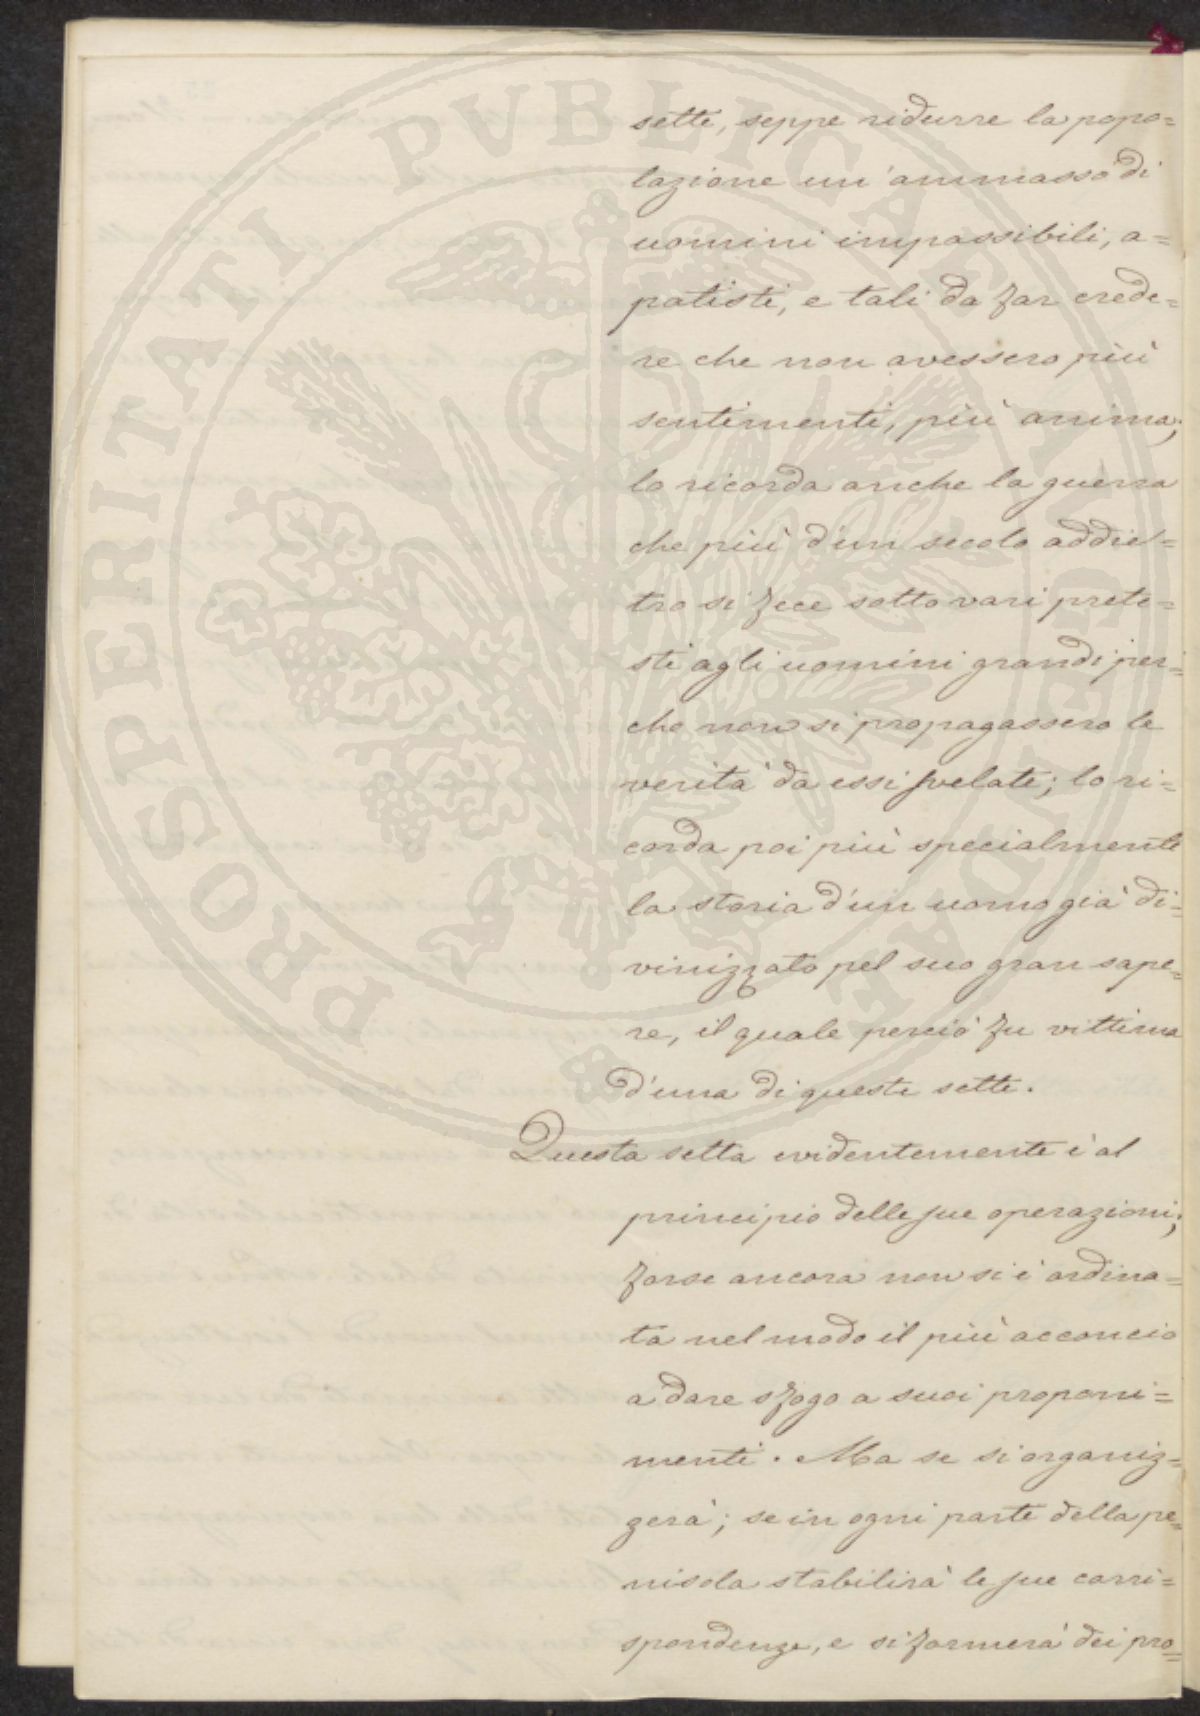 sette, seppe ridurre la popo=
lazione un'ammasso di
uomini impassibili, a=
patisti, e tali da far crede=
re che non avessero più
sentimenti, più anima;
lo ricorda anche la guerra
che più d'un secolo addie=
tro si fece sotto vari prete=
sti agli uomini grandi per=
che non si propagassero le
verità da essi svelate; lo ri=
corda poi più specialmente
la storia d'un uomo già di=
vinizzato pel suo gran sape=
re, il quale perciò fu vittima
d'una di queste sette.
Questa setta evidentemente è al
principio delle sue operazioni;
forse ancora non si è ordina=
ta nel modo il più acconcio
a dare sfogo a suoi proponi=
menti. Ma se si organiz=
zerà; se in ogni parte della pe=
nisola stabilirà le sue corri=
spondenze, e si formerà dei pro=
PROSPERITATI PVBLICAE AVGENDAE